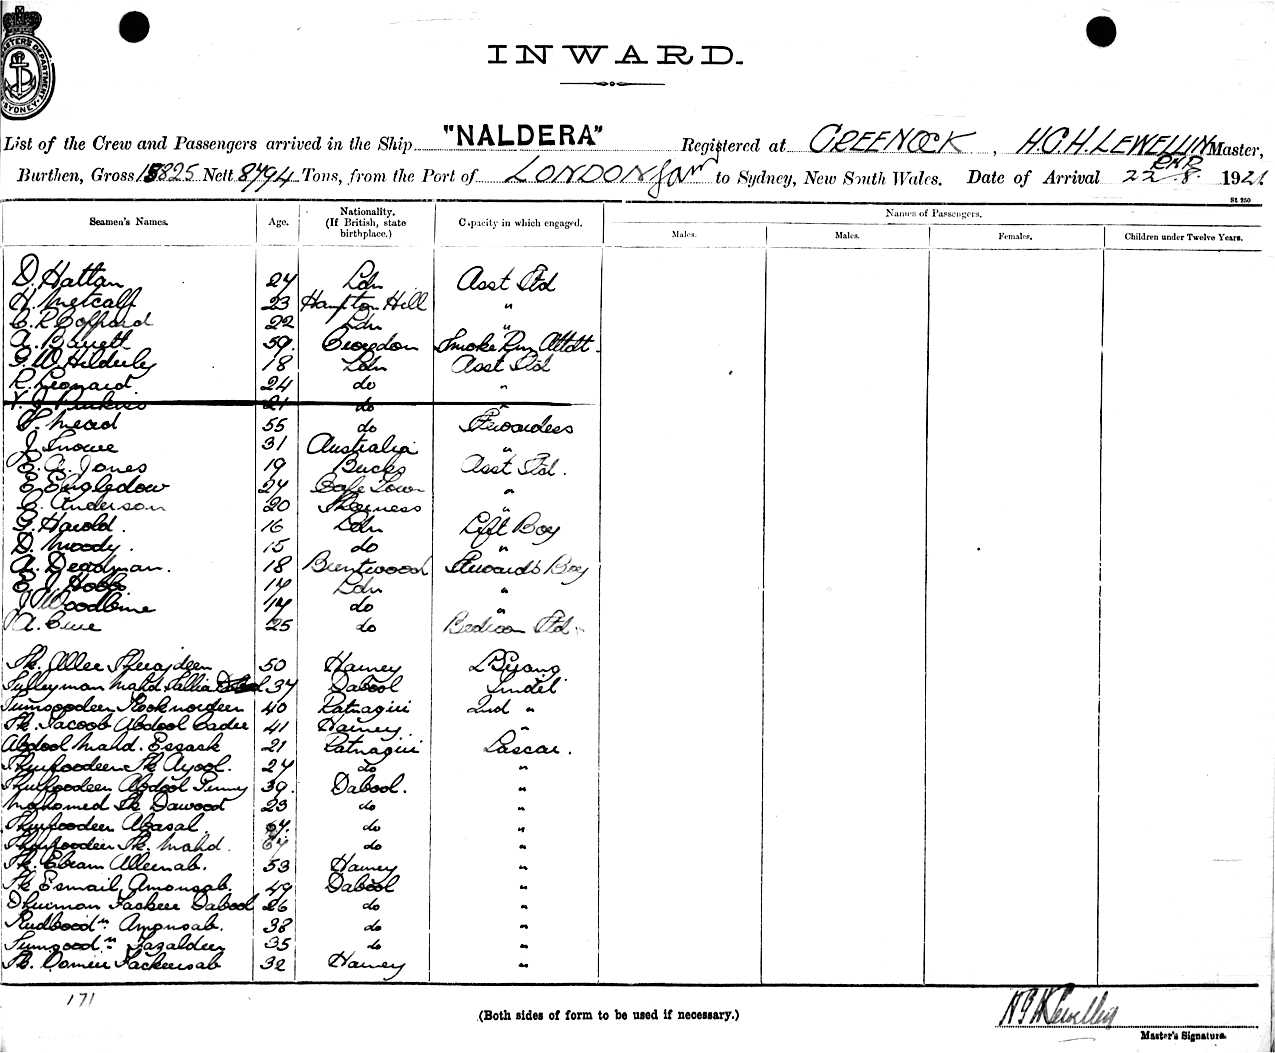 INWARD.
List of the Crew and Passengers arrived in the Ship "NALDERA" Registered at GREENOCK, H.G.H. LEWELLIN Master,
RNR
Burthen, Gross 15825 Nett 8794 Tons, from the Port of LONDON to Sydney, New South Wales. Date of Arrival 22.8.1921
St. 250
Seamen's Names. Age. Nationality. (If British, state birthplace.) Capacity in which engaged. Names of Passengers.
Males. Males. Females. Children under Twelve Years.
D. Hattan 24 Ldn Asst Std
H. Metcalf 23 Hampton Hill "
C. R. Coppard 22 Ldn "
A. Barrett 59. Croydon Smoke Rm Attdt.
G. W. Hilderley 18 Ldn Asst Std
R. Leonard 24 do "
21 do "
F. Mead 55 do Stewardess
J. Snowe 31 Australia "
E. A. Jones 19 Bucks Asst Std.
E. Engledow 24 Cape Town "
C. Anderson 20 Sheerness "
G. Harold. 16 Ldn Lift Boy
D. Moody. 15 do "
A. Deadman. 18 Brentwood Steward's Boy
E. J. Hobbs. 14 Ldn "
J. Woodbine 14 do "
A. 25 do Bedroom Std.
Sk. Allee Sherajdeen 50 Harney L Syang
Sulleyman Mahd 34 Dabool Tindel
Kooknordeen 40 Ratnagiri 2nd "
Sk. Jacoob Abdool Cader 41 Harney. "
Abdool Mahd. Essack 21 Ratnagiri Lascar.
Shurfoodeen Sk Ayool. 24 do "
Shurfoodeen Abdool 39. Dabool. "
Mahomed Sk Dawood 23 do "
Shurfoodeen Abasal. do "
Shurfoodeen Sk. Mahd. do "
Sk. Ebram Alleenab. 53 Harney "
Sk Esmail Amonsab. 49 Dabool "
Dabool 26 do "
Amonsab. 38 do "
Fazaldeen 35 do "
Sk. 32 Harney "
171
(Both sides of form to be used if necessary.)
Master's Signature.